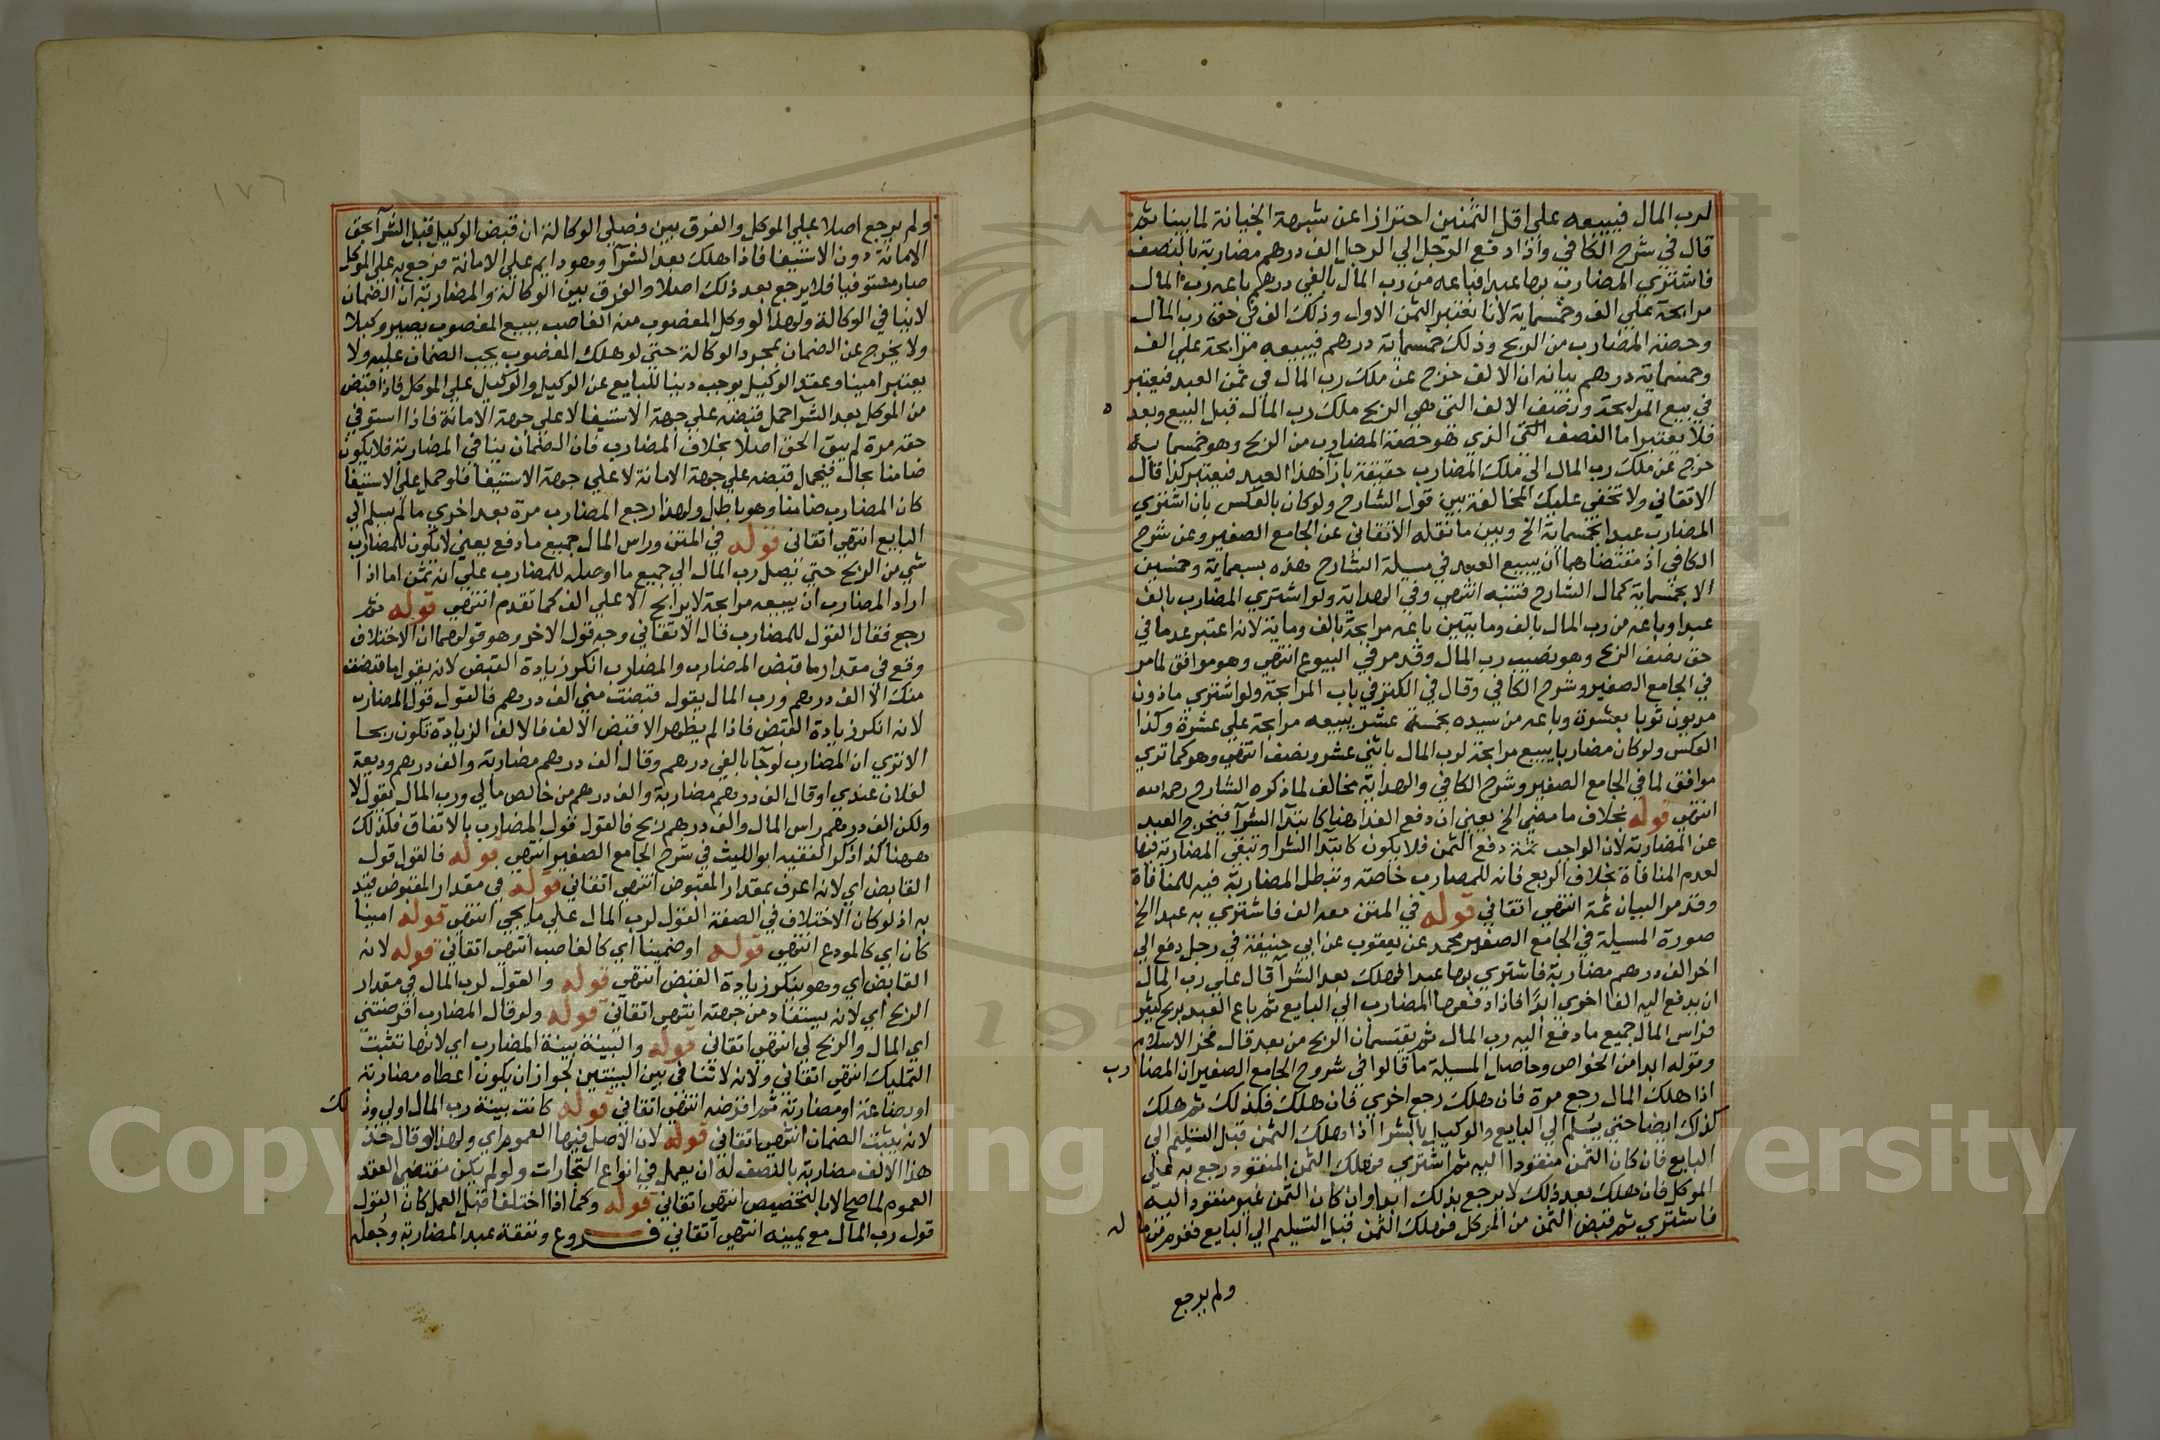 لرب المال فيبيعه على اقل الثمنين احترازا عن شبهة الخيانة لما بينا ثم
قال في شرح الكافي واذا دفع الرجل الي الرجل الف درهم مضاربة بالنصف
فاشتري المضارب بها عبدا فباعه من رب المال بالفي درهم باعه رب المال
مرابحة علي الف وخمسماية لانا نعتبر الثمن الاول وذلك الف في حق رب المال
وحصة المضارب من الربح وذلك خمسماية درهم فيبيعه مرابحة علي الف
وخمسماية درهم بيانه ان الالف خرج عن ملك رب المال في ثمن العبد فيعتبر
في بيع المرابحة ونصف الالف التي هي الربح ملك رب المال قبل البيع وبعده
فلا يعتبر اما النصف الذي هو حصة المضارب من الربح وهو خمسماية
خرج عن ملك رب المال الي ملك المضارب حقيقة بازآ هذا العبد فيعتبر كذا قال
الاتقاني ولا تخفي عليك المخالفة بين قول الشارح ولو كان بالعكس بان اشتري
المضارب عبدا بخمسماية الخ وبين ما نقله الاتقاني عن الجامع الصغير وعن شرح
الكافي اذ مقتضاهما ان يبيع العبد في مسيلة الشارح هذه بسبعماية وخمسين
لا بخمسماية كمال الشارح فتنبه انتهي وفي الهداية ولو اشتري المضارب بالف
عبدا وباعه من رب المال بالف ومايتين باعه مرابحة بالف وماية لانه اعتبر عدما في
حق نصف الربح وهو نصيب رب المال وقد مر في البيوع انتهي وهو موافق لما مر
في الجامع الصغير وشرح الكافي وقال في الكنز في باب المرابحة ولو اشتري ماذون
مديون ثوبا بعشرة وباعه من سيده بخمسة عشر يبيعه مرابحة علي عشرة وكذا
العكس ولو كان مضاربا يبيع مرابحة لرب المال باثني عشر ونصف انتهي وهو كما تري
موافق لما في الجامع الصغير وشرح الكافي والهداية مخالف لما ذكره الشارح رحمه الله
انتهي قوله بخلاف ما مضي الخ يعني ان دفع الفدا هنا كابتدآ الشرآ فيخرج العبد
عن المضاربة لان الواجب ثمة دفع الثمن فلا يكون كابتدآ الشرآ وتبقي المضاربة فيها
لعدم المنافاة بخلاف الربع فانه للمضارب خاصة وتبطل المضاربة فيه للمنافاة
وقد مر البيان ثمة انتهي اتقاني قوله في المتن معه الف فاشتري به عبدا الخ
صورة المسيلة في الجامع الصغير محمد عن يعقوب عن ابي حنيفة في رجل دفع الي
اخر الف درهم مضاربة فاشتري بها عبدا فهلك بعد الشرآ قال علي رب المال
ان يدفع اليه الفا اخري ابدًا فاذا دفعها المضارب الي البايع ثم باع العبد بربح كثير
فراس المال جميع ما دفع اليه رب المال ثم يقتسمان الربح من بعد قال فخر الاسلام
وقوله ابدا من الخواص وحاصل المسيلة ما قالوا في شروح الجامع الصغير ان المضارب
اذا هلك المال رجع مرة فان هلك رجع اخري فان هلك فكذلك ثم هلك
كذلك ايضا حتي يسلم الي البايع والوكيل بالشرآ اذا هلك الثمن قبل التسليم الي
البايع فان كان الثمن منقودا اليه ثم اشتري فهلك الثمن المنقود رجع به علي
الموكل فان هلك بعد ذلك لا يرجع بذلك ابدا وان كان الثمن غير منقود اليه
فاشتري ثم قبض الثمن من الموكل فهلك الثمن قبل التسليم الي البايع فغرم من ماله
ولم يرجع
ولم يرجع اصلا علي الموكل والفرق بين فصلي الوكالة ان قبض الوكيل قبل الشرآ بحق
الامانة دون الاستيفا فاذا هلك بعد الشرآ وهو دايم علي الامانة فرجع به علي الموكل
صار مستوفيا فلا يرجع بعد ذلك اصلا والفرق بين الوكالة والمضاربة ان الضمان
لا ينافي الوكالة ولهذا لو وكل المغصوب منه الغاصب ببيع المغصوب يصير وكيلا
ولا يخرج عن الضمان بمجرد الوكالة حتي لو هلك المغضوب يجب الضمان عليه ولا
يعتبر امينا وعقد الوكيل يوجب دينا للبايع عن الوكيل وللوكيل علي الموكل فاذا قبض
من الموكل بعد الشرآ حمل قبضه علي جهة الاستيفا لا علي جهة الامانة فاذا استوفي
حقه مرة لم يبق الحق اصلا بخلاف المضارب فان الضمان ينافي المضاربة فلا يكون
ضامنا بحال فيحمل قبضه علي جهة الامانة لا علي جهة الاستيفا فلو حمل علي الاستيفا
كان المضارب ضامنا وهو باطل ولهذا رجع المضارب مرة بعد اخري ما لم يسلم الي
البايع انتهي اتقاني قوله في المتن وراس المال جميع ما دفع يعني لا يكون للمضارب
شي من الربح حتي يصل رب المال الي جميع ما اوصله للمضارب علي انه ثمن اما اذا
اراد المضارب ان يبيعه مرابحة لا يرابح الا علي الف كما تقدم انتهي قوله ثم
رجع فقال القول للمضارب قال الاتقاني وجه قول الاخر وهو قولهما ان الاختلاف
وقع في مقدار ما قبض المضارب والمضارب انكر زيادة القبض لانه يقول ما قبضت
منك الا الف درهم ورب المال يقول قبضت مني الف درهم فالقول قول المضارب
لانه انكر زيادة القبض فاذا لم يظهر الا قبض الالف فالالف الزيادة تكون ربحا
الا تري ان المضارب لو جآ بالفي درهم وقال الف درهم مضاربة والف درهم وديعة
لفلان عندي او قال الف درهم مضاربة والف درهم من خالص مالي ورب المال يقول لا
ولكن الف درهم راس المال والف درهم ربح فالقول قول المضارب بالاتفاق فكذلك
ههنا كذا ذكر الفقيه ابو الليث في شرح الجامع الصغير انتهي قوله فالقول قول
القابض اي لانه اعرف بمقدار المقبوض انتهي اتقاني قوله في مقدار المقبوض قيد
به اذ لو كان الاختلاف في الصفة القول لرب المال علي ما يجي انتهي قوله امينا
كان اي كالمودع انتهي قوله او ضمينا اي كالغاصب انتهي اتقاني قوله لانه
القابض اي وهو ينكر زيادة القبض انتهي قوله والقول لرب المال في مقدار
الربح اي لانه يستفاد من جهته انتهي اتقاني قوله ولو قال المضارب اقرضتني
اي المال والربح لي انتهي اتقاني قوله والبينة بينة المضارب اي لانها تثبت
التمليك انتهي اتقاني ولانه لا تنافي بين البينتين لجواز ان يكون اعطاه مضاربة
او بضاعة او مضاربة ثم اقرضه انتهي اتقاني قوله كانت بينة رب المال اولي وذلك
لانه يثبت الضمان انتهي اتقاني قوله لان الاصل فيها العموم اي ولهذا لو قال خذ
هذا الالف مضاربة بالنصف له ان يعمل في انواع التجارات ولو لم يكن مقتضي العقد
العموم لما صح الا بالتخصيص انتهي اتقاني قوله وكما اذا اختلفا قبل العمل كان القول
قول رب المال مع يمينه انتهي اتقاني فروع ونفقة عبد المضاربة وجُعله